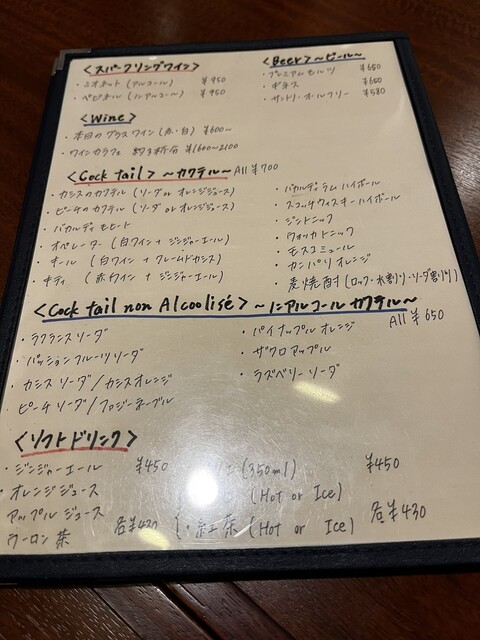 <スパークリングワイン>
・ミオネット (アルコール) ¥950
・ペピネル (ノンアルコール) ¥950
<Beer> ~ビール~
・プレミアムモルツ ¥650
・ギネス ¥650
・サントリーオールフリー ¥580
<Wine>
・本日のグラスワイン (赤・白) ¥600~
・ワインカラフェ 約3杯分 ¥1600~2100
<Cock tail> ~カクテル~ All ¥700
・カシスのカクテル (ソーダ or オレンジジュース)
・ピーチのカクテル (ソーダ or オレンジジュース)
・バカルディモヒート
・オペレーター (白ワイン + ジンジャーエール)
・キール (白ワイン + クレームドカシス)
・キティ (赤ワイン + ジンジャーエール)
・バカルディラムハイボール
・スコッチウィスキーハイボール
・ジントニック
・ウォッカトニック
・モスコミュール
・カンパリオレンジ
・麦焼酎 (ロック・水割り・ソーダ割り)
<Cock tail non Alcoolisé> ~ノンアルコールカクテル~
All ¥650
・ラフランスソーダ
・パッションフルーツソーダ
・カシスソーダ/カシスオレンジ
・ピーチソーダ/ファジーネーブル
・パイナップルオレンジ
・ザクロアップル
・ラズベリーソーダ
<ソフトドリンク>
・ジンジャーエール ¥450
・オレンジジュース
アップルジュース
ウーロン茶 各¥430
(350ml) ¥450
(Hot or Ice)
・紅茶 (Hot or Ice) 各¥430